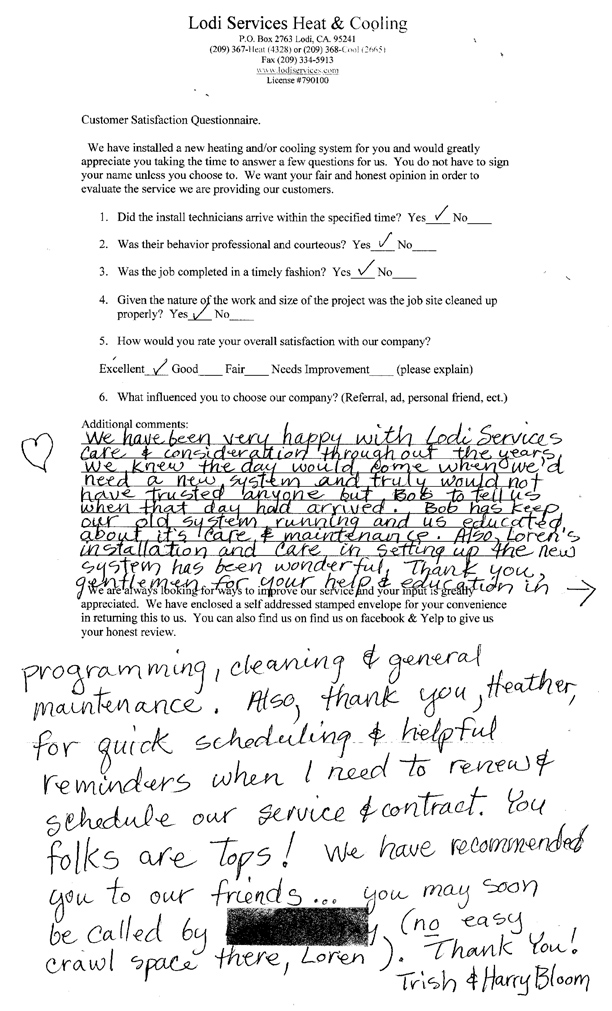 Lodi Services Heat & Cooling
P.O. Box 2763 Lodi, CA. 95241
(209) 367-Heat (4328) or (209) 368-Cool (2665)
Fax (209) 334-5913
www.lodiservices.com
License #790100
Customer Satisfaction Questionnaire.
We have installed a new heating and/or cooling system for you and would greatly
appreciate you taking the time to answer a few questions for us. You do not have to sign
your name unless you choose to. We want your fair and honest opinion in order to
evaluate the service we are providing our customers.
1. Did the install technicians arrive within the specified time? Yes ✓ No___
2. Was their behavior professional and courteous? Yes ✓ No___
3. Was the job completed in a timely fashion? Yes ✓ No___
4. Given the nature of the work and size of the project was the job site cleaned up
properly? Yes ✓ No___
5. How would you rate your overall satisfaction with our company?
Excellent ✓ Good___ Fair___ Needs Improvement___ (please explain)
6. What influenced you to choose our company? (Referral, ad, personal friend, ect.)
Additional comments:
We have been very happy with Lodi Services
care & consideration throughout the years.
We knew the day would come when we'd
need a new system and truly would not
have trusted anyone but Bob to tell us
when that day had arrived. Bob has keep
our old system running and us educated
about it's care & maintenance. Also, Loren's
installation and care in setting up the new
system has been wonderful. Thank you,
gentlemen for your help & education in →
We are always looking for ways to improve our service and your input is greatly
appreciated. We have enclosed a self addressed stamped envelope for your convenience
in returning this to us. You can also find us on find us on facebook & Yelp to give us
your honest review.
programming, cleaning & general
maintenance. Also, thank you, Heather,
for quick scheduling & helpful
reminders when I need to renew &
schedule our service & contract. You
folks are Tops! We have recommended
you to our friends... you may soon
be called by y, (no easy
crawl space there, Loren). Thank You!
Trish & Harry Bloom